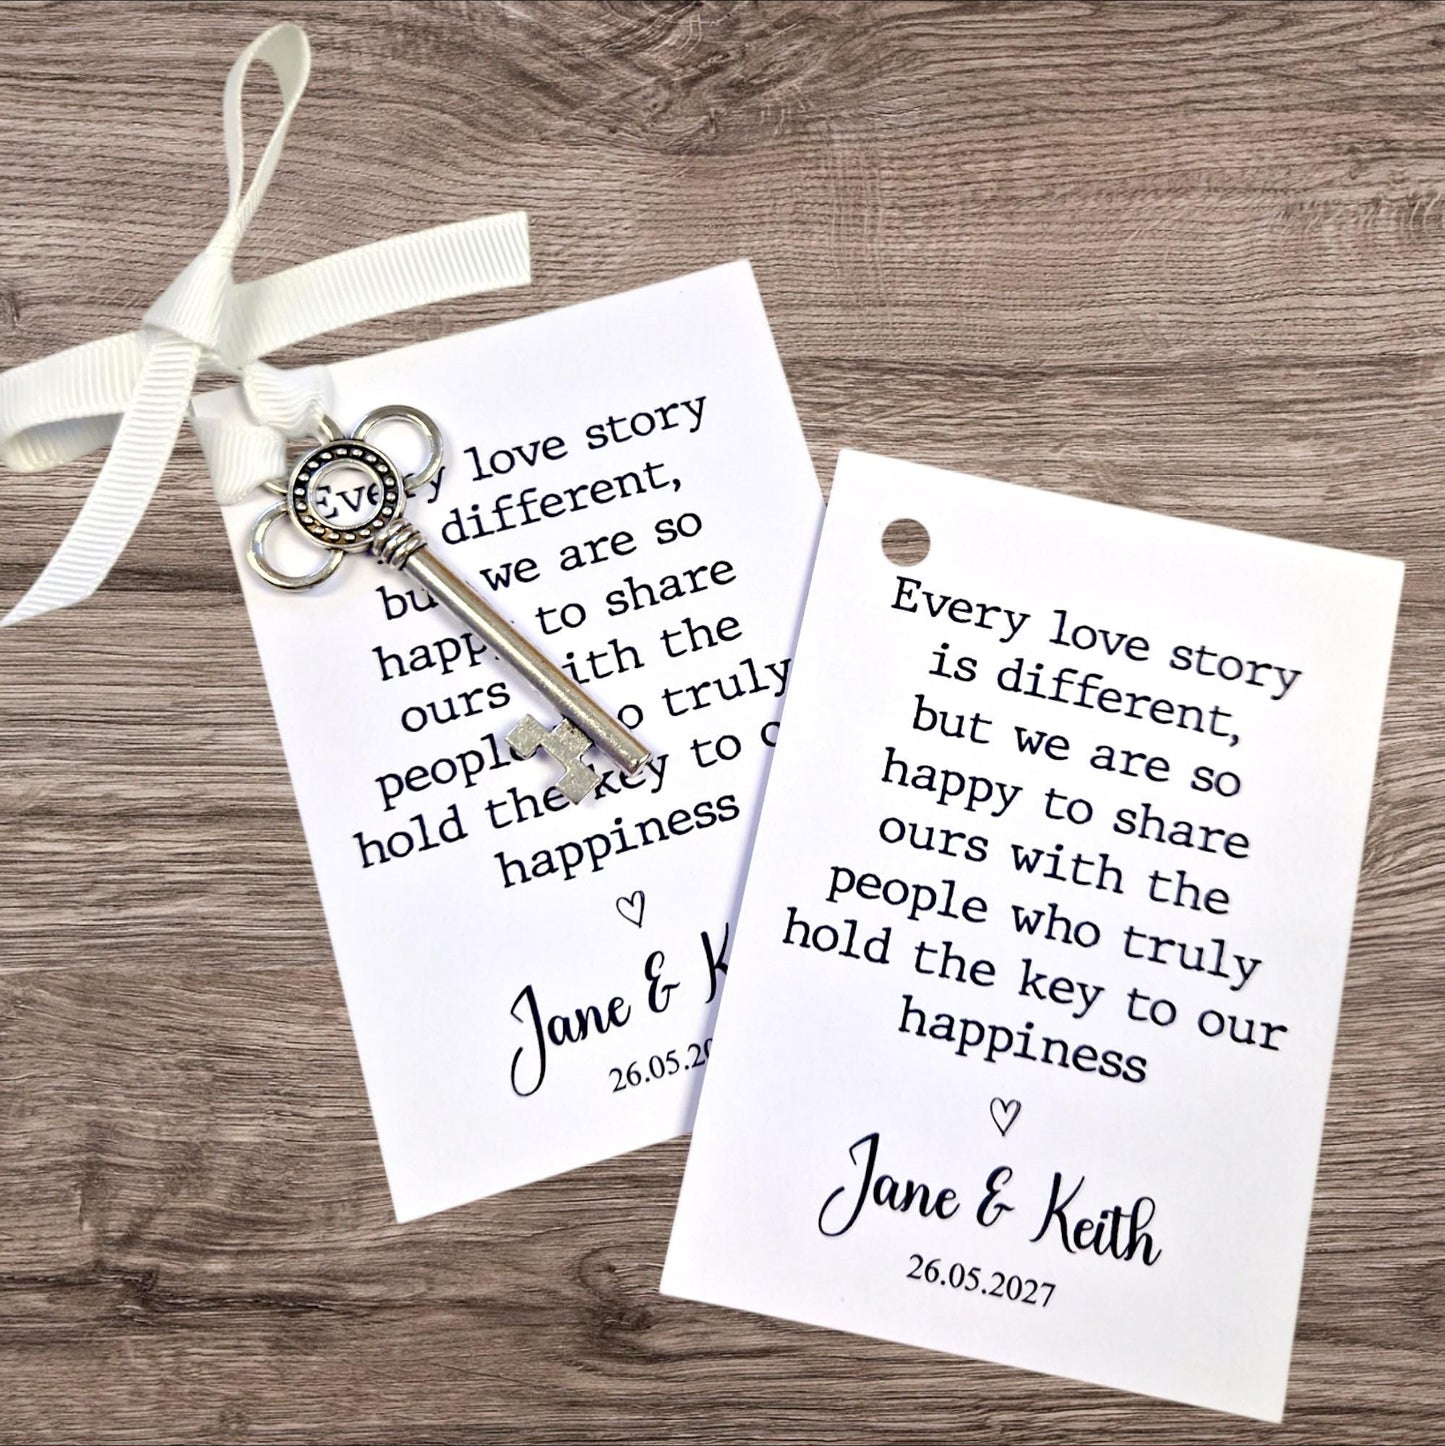 Every love story
different,
but we are so
happy to share
ours with the
people who truly
hold the key to
happiness
Jane &
26.05.20
Every love story
is different,
but we are so
happy to share
ours with the
people who truly
hold the key to our
happiness
Jane & Keith
26.05.2027